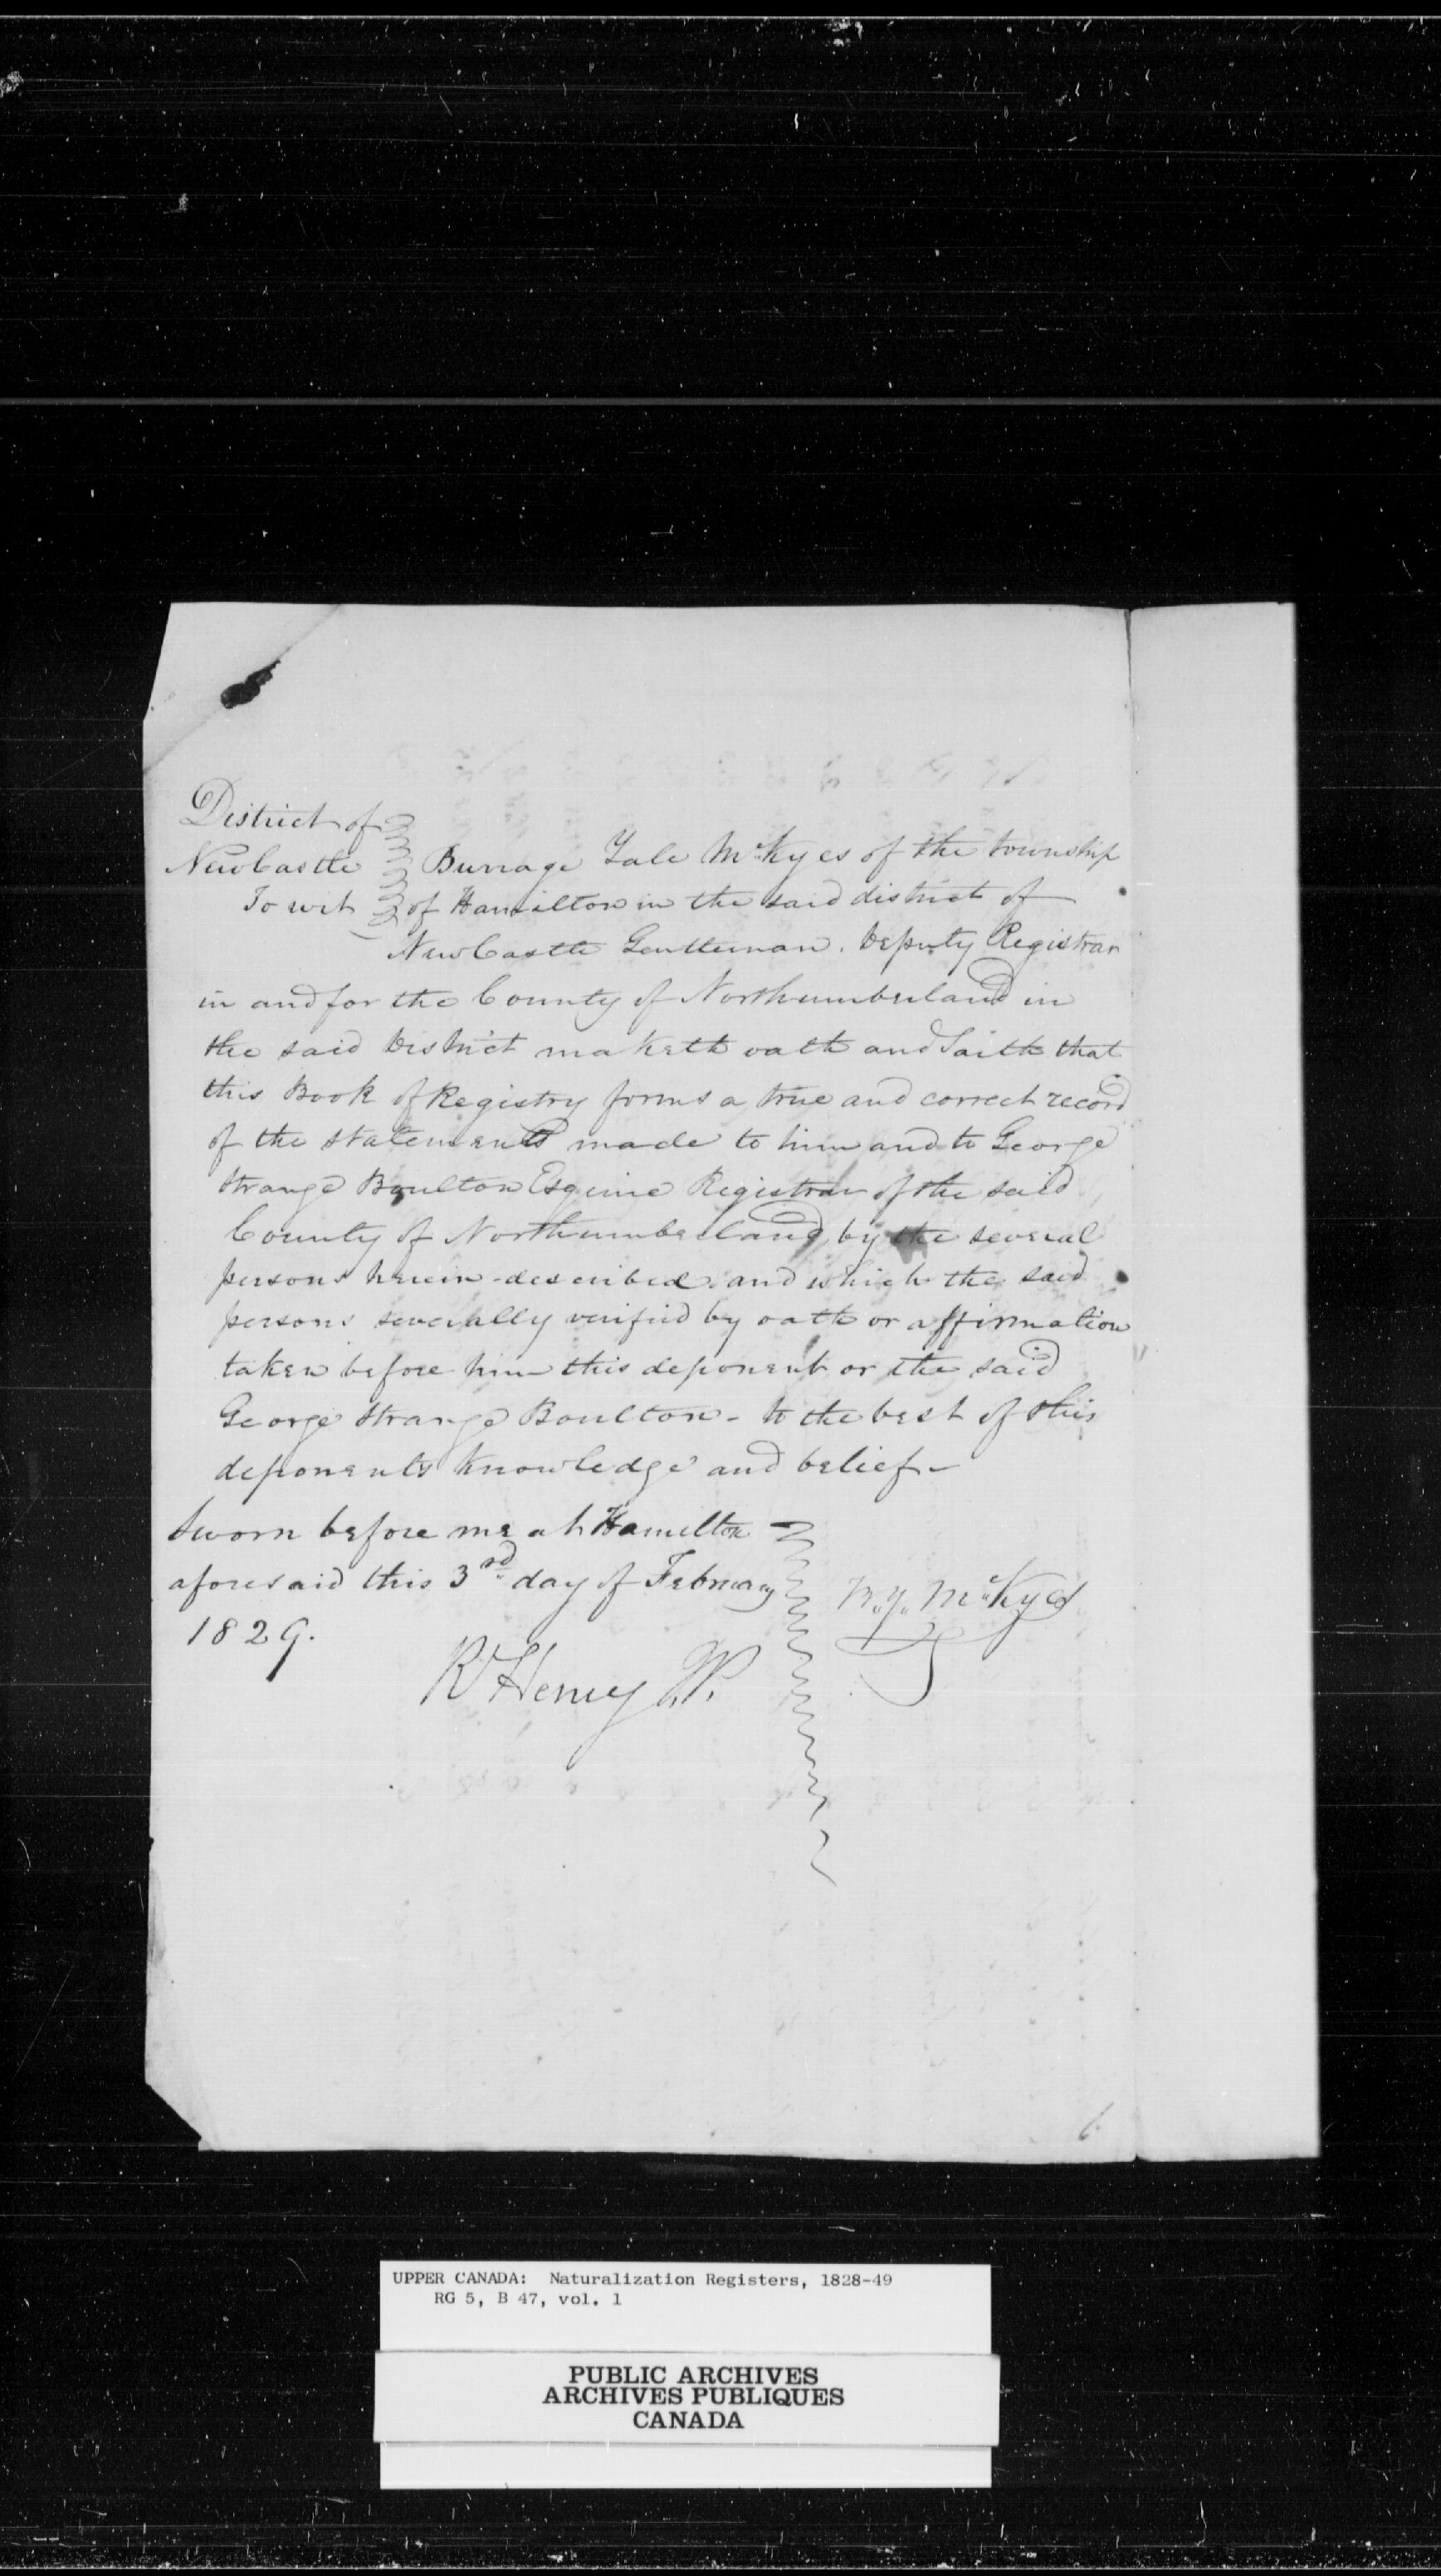 District of
NewCastle Burrage Yale McKyes of the township
To wit of Hamilton in the said district of
NewCastle Gentleman. Deputy Registrar
in and for the County of Northumberland in
the said District maketh oath and Saith that
this Book of Registry forms a true and correct record
of the statements made to him and to George
Strange Boulton Esquire Registrar of the said
County of Northumberland by the several
persons herein-described and which the said
persons severally verified by oath or affirmation
taken before him this deponent or the said
George Strange Boulton - to the best of this
deponents knowledge and belief -
Sworn before me at Hamilton
aforesaid this 3rd day of February
1829.
B. Y. McKyes
R Henry JP.
6
UPPER CANADA: Naturalization Registers, 1828-49
RG 5, B 47, vol. 1
PUBLIC ARCHIVES
ARCHIVES PUBLIQUES
CANADA